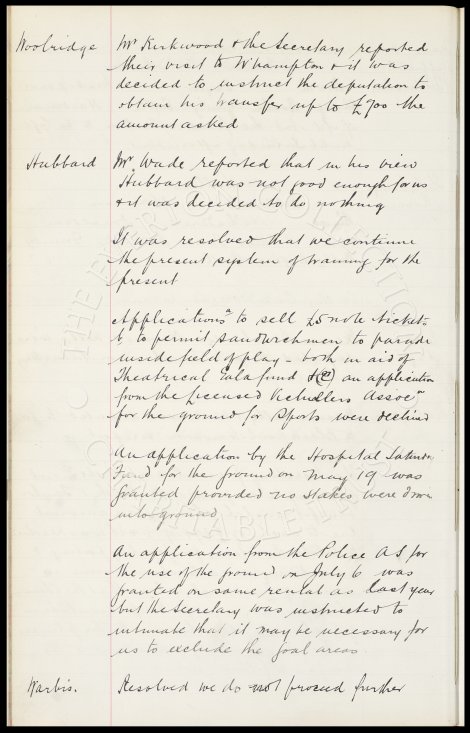 Woolridge Mr Kirkwood & the Secretary reported
their visit to W'hampton & it was
decided to instruct the deputation to
obtain his transfer up to £700 the
amount asked
Hubbard Mr Wade reported that in his view
Hubbard was not good enough for us
& it was decided to do nothing
It was resolved that we continue
the present system of training for the
present
Applications to sell £5 note tickets
to permit sandwichmen to parade
inside field of play - both in aid of
Theatrical Gala fund & an application
from the Licensed Victuallers Assocn
for the ground for Sports were declined
An application by the Hospital Saturday
Fund for the ground on May 19 was
granted provided no stakes were driven
into ground
An application from the Police AS for
the use of the ground on July 6 was
granted on same rental as last year
but the Secretary was instructed to
intimate that it may be necessary for
us to exclude the goal areas.
Warbis. Resolved we do not proceed further